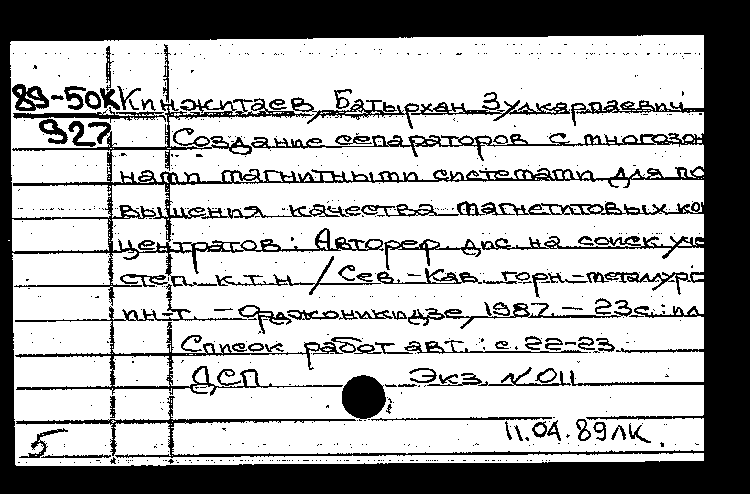 89-50К Кинжитаев, Батырхан Зулкарпаевич
927 Создание сепараторов с многозон
ными магнитными системами для по
вышения качества магнетитовых кон
центратов: Автореф дис на соиск. уче
степ. к.т.н / Сев.-Кав. горн.-металлург
ин-т. – Орджоникидзе, 1987. – 23с.: ил
Список работ авт.: с. 22-23.
ДСП. Экз. №011
5 11.04.89ЛК.